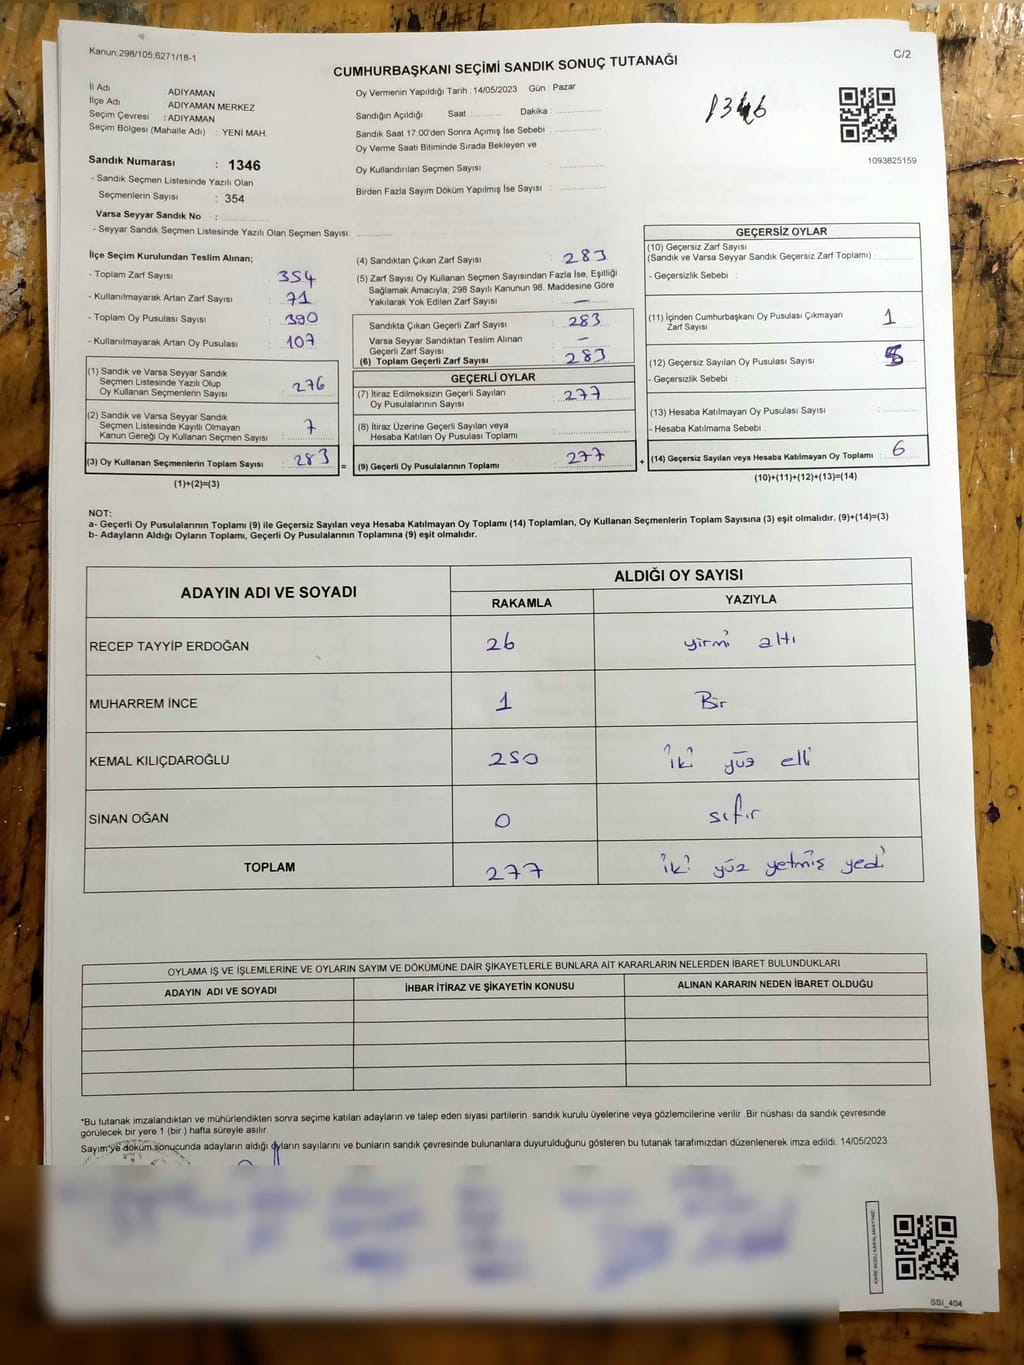 Kanun:298/105;6271/18-1
C/2
CUMHURBAŞKANI SEÇİMİ SANDIK SONUÇ TUTANAĞI
İl Adı : ADIYAMAN
İlçe Adı : ADIYAMAN MERKEZ
Seçim Çevresi : ADIYAMAN
Seçim Bölgesi (Mahalle Adı) : YENİ MAH.
Sandık Numarası : 1346
- Sandık Seçmen Listesinde Yazılı Olan
Seçmenlerin Sayısı : 354
Varsa Seyyar Sandık No :
- Seyyar Sandık Seçmen Listesinde Yazılı Olan Seçmen Sayısı:
Oy Vermenin Yapıldığı Tarih : 14/05/2023 Gün : Pazar
Sandığın Açıldığı Saat : Dakika :
Sandık Saat 17:00'den Sonra Açımış İse Sebebi :
Oy Verme Saati Bitiminde Sırada Bekleyen ve
Oy Kullandırılan Seçmen Sayısı :
Birden Fazla Sayım Döküm Yapılmış İse Sayısı :
1346
1093825159
İlçe Seçim Kurulundan Teslim Alınan;
- Toplam Zarf Sayısı : 354
- Kullanılmayarak Artan Zarf Sayısı : 71
- Toplam Oy Pusulası Sayısı : 390
- Kullanılmayarak Artan Oy Pusulası : 107
(1) Sandık ve Varsa Seyyar Sandık
Seçmen Listesinde Yazılı Olup
Oy Kullanan Seçmenlerin Sayısı : 276
(2) Sandık ve Varsa Seyyar Sandık
Seçmen Listesinde Kayıtlı Olmayan
Kanun Gereği Oy Kullanan Seçmen Sayısı : 7
(3) Oy Kullanan Seçmenlerin Toplam Sayısı : 283
(1)+(2)=(3)
(4) Sandıktan Çıkan Zarf Sayısı : 283
(5) Zarf Sayısı Oy Kullanan Seçmen Sayısından Fazla İse, Eşitliği
Sağlamak Amacıyla; 298 Sayılı Kanunun 98. Maddesine Göre
Yakılarak Yok Edilen Zarf Sayısı : —
Sandıkta Çıkan Geçerli Zarf Sayısı : 283
Varsa Seyyar Sandıktan Teslim Alınan
Geçerli Zarf Sayısı : —
(6) Toplam Geçerli Zarf Sayısı : 283
GEÇERLİ OYLAR
(7) İtiraz Edilmeksizin Geçerli Sayılan
Oy Pusulalarının Sayısı : 277
(8) İtiraz Üzerine Geçerli Sayılan veya
Hesaba Katılan Oy Pusulası Toplamı :
= (9) Geçerli Oy Pusulalarının Toplamı : 277
GEÇERSİZ OYLAR
(10) Geçersiz Zarf Sayısı
(Sandık ve Varsa Seyyar Sandık Geçersiz Zarf Toplamı) :
- Geçersizlik Sebebi :
(11) İçinden Cumhurbaşkanı Oy Pusulası Çıkmayan
Zarf Sayısı : 1
(12) Geçersiz Sayılan Oy Pusulası Sayısı : 5
- Geçersizlik Sebebi :
(13) Hesaba Katılmayan Oy Pusulası Sayısı :
- Hesaba Katılmama Sebebi :
+ (14) Geçersiz Sayılan veya Hesaba Katılmayan Oy Toplamı : 6
(10)+(11)+(12)+(13)=(14)
NOT:
a- Geçerli Oy Pusulalarının Toplamı (9) ile Geçersiz Sayılan veya Hesaba Katılmayan Oy Toplamı (14) Toplamları, Oy Kullanan Seçmenlerin Toplam Sayısına (3) eşit olmalıdır. (9)+(14)=(3)
b- Adayların Aldığı Oyların Toplamı, Geçerli Oy Pusulalarının Toplamına (9) eşit olmalıdır.
ADAYIN ADI VE SOYADI
ALDIĞI OY SAYISI
RAKAMLA YAZIYLA
RECEP TAYYİP ERDOĞAN 26 yirmi altı
MUHARREM İNCE 1 Bir
KEMAL KILIÇDAROĞLU 250 iki yüz elli
SİNAN OĞAN 0 sıfır
TOPLAM 277 iki yüz yetmiş yedi
OYLAMA İŞ VE İŞLEMLERİNE VE OYLARIN SAYIM VE DÖKÜMÜNE DAİR ŞİKAYETLERLE BUNLARA AİT KARARLARIN NELERDEN İBARET BULUNDUKLARI
ADAYIN ADI VE SOYADI İHBAR İTİRAZ VE ŞİKAYETİN KONUSU ALINAN KARARIN NEDEN İBARET OLDUĞU
*Bu tutanak imzalandıktan ve mühürlendikten sonra seçime katılan adayların ve talep eden siyasi partilerin sandık kurulu üyelerine veya gözlemcilerine verilir .Bir nüshası da sandık çevresinde
görülecek bir yere 1 (bir ) hafta süreyle asılır.
Sayım ve döküm sonucunda adayların aldığı oyların sayılarını ve bunların sandık çevresinde bulunanlara duyurulduğunu gösteren bu tutanak tarafımızdan düzenlenerek imza edildi. 14/05/2023
KARE KODU KARALAMAYINIZ!
SSI_404